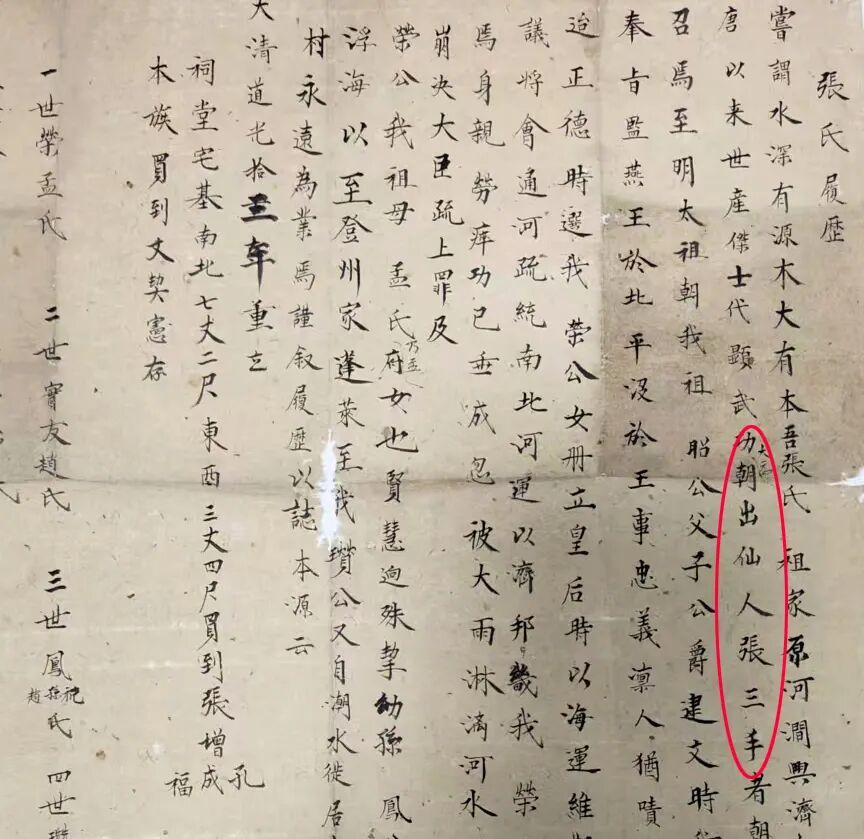 張氏履歷
嘗謂水深有源木大有本吾張氏祖家原河澗興濟
唐以来世産傑士代顯武功朝出仙人張三手者朝
召焉至明太祖朝我祖昭公父子公爵建文時
奉旨監燕王於北平沒於王事忠義凛人猶嘖
迨正德時選我榮公女冊立皇后時以海運維
議將會通河疏統南北河運以濟邦畿我榮
焉身親勞瘁功已垂成忽被大雨淋漓河水
崩決大臣疏上罪及
榮公我祖母孟氏乃孟府女也賢慧逈殊挈幼孫鳳
浮海以至登州家蓬萊至我瓚公又自潮水徙居
村永遠為業焉謹叙履歷以誌本源云
大清道光拾三年重立
祠堂宅基南北七丈二尺東西三丈四尺買到張增成福孔
本族買到文契憲存
一世榮孟氏 二世實友趙氏 三世鳳祝孫趙氏 四世